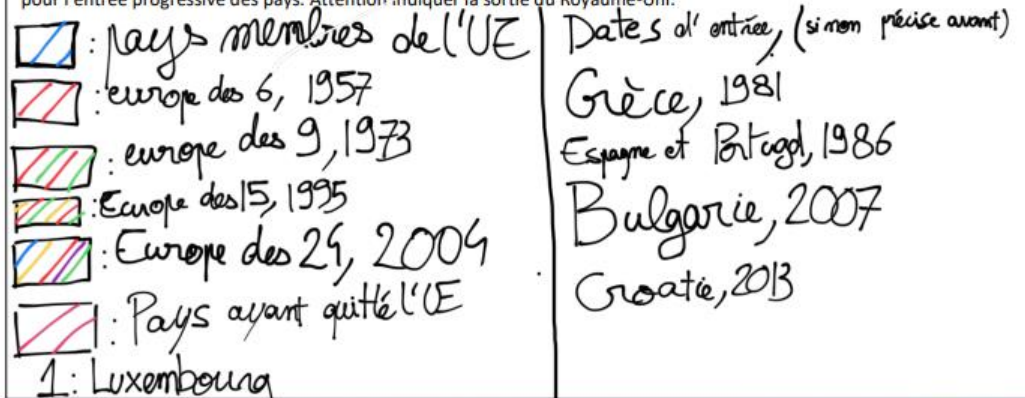 pour l'entrée progressive des pays. Attention indiquer la sortie du Royaume-Uni.
: pays membres de l'UE
: europe des 6, 1957
: europe des 9, 1973
: Europe des 15, 1995
: Europe des 24, 2004
: Pays ayant quitté l'UE
1: Luxembourg
Dates d'entrée, (si non précise avant)
Grèce, 1981
Espagne et Portugal, 1986
Bulgarie, 2007
Croatie, 2013